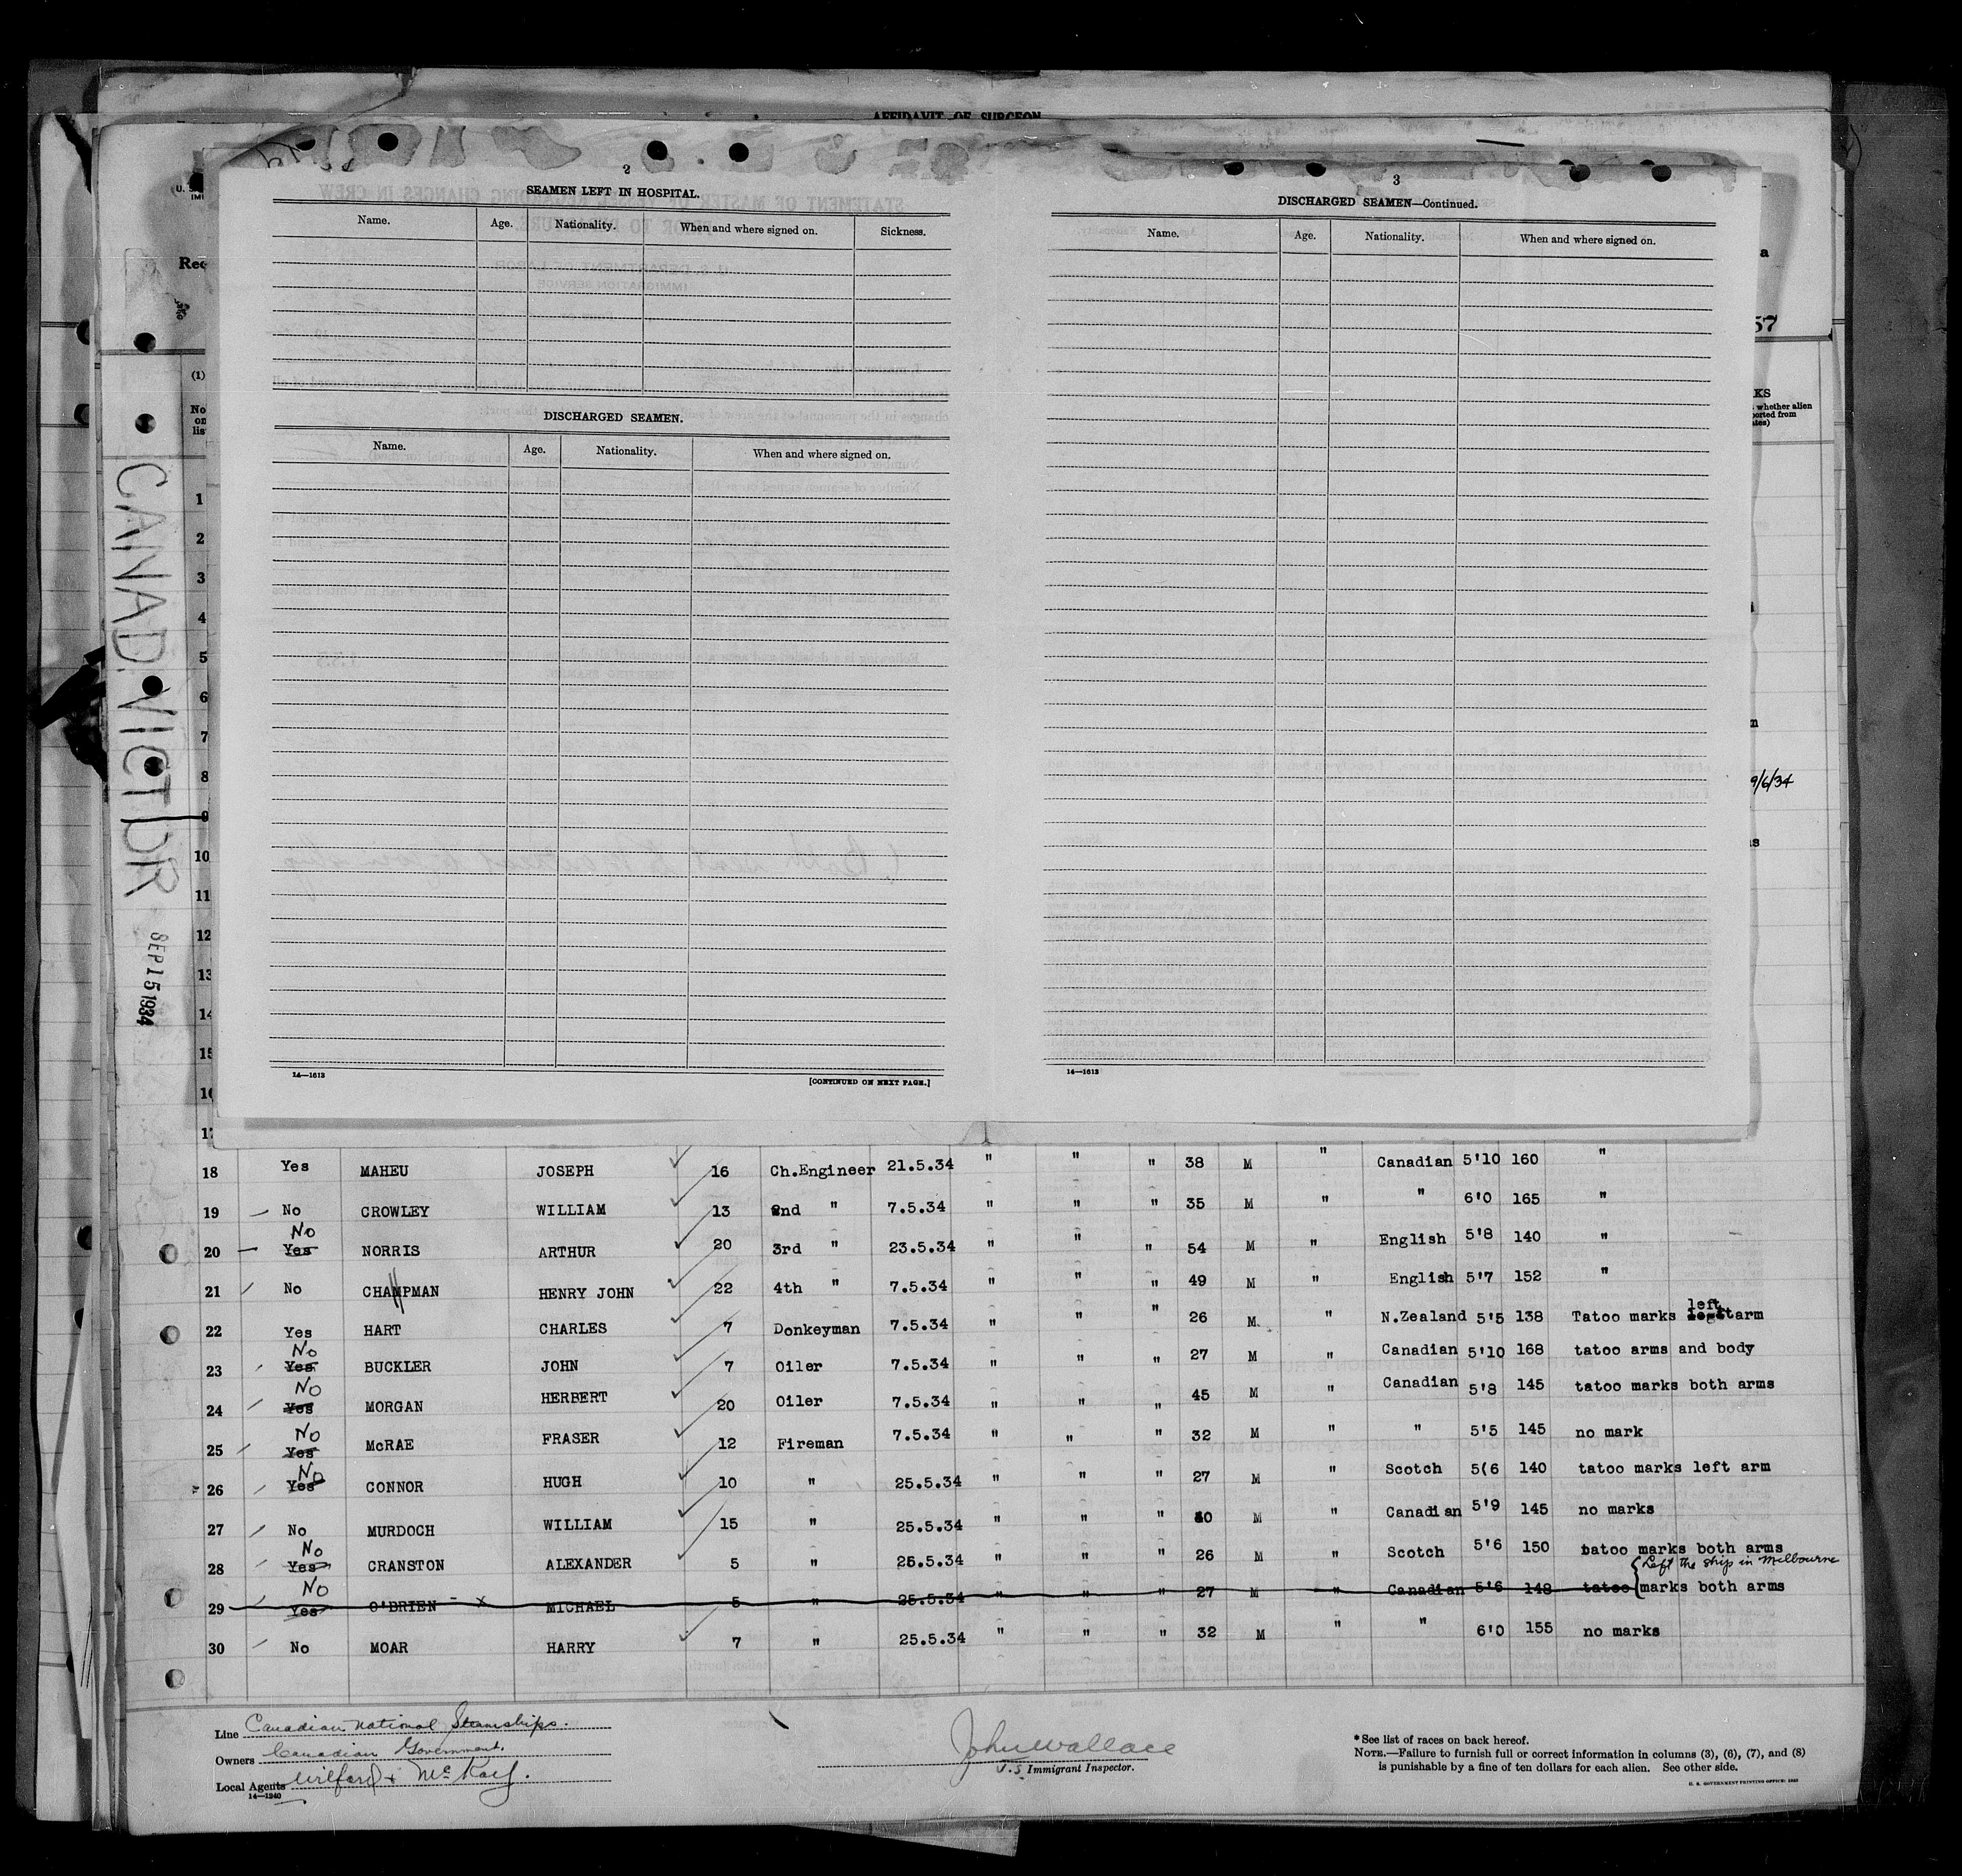 AFFIDAVIT OF SURGEON
2
SEAMEN LEFT IN HOSPITAL.
Name. Age. Nationality. When and where signed on. Sickness.
DISCHARGED SEAMEN.
Name. Age. Nationality. When and where signed on.
14—1613
[CONTINUED ON NEXT PAGE.]
3
DISCHARGED SEAMEN—Continued.
Name. Age. Nationality. When and where signed on.
14—1613
57
whether alien
9/6/34
(1)
1
2
3
4
5
6
7
8
9
10
11
12
13
14
15
CANAD. VICTOR
SEP 15 1934
18 Yes MAHEU JOSEPH 16 Ch.Engineer 21.5.34 " " " 38 M " Canadian 5'10 160 "
19 No CROWLEY WILLIAM 13 2nd " 7.5.34 " " " 35 M " " 6'0 165 "
No
20 Yes NORRIS ARTHUR 20 3rd " 23.5.34 " " " 54 M " English 5'8 140 "
21 No CHAPMAN HENRY JOHN 22 4th " 7.5.34 " " " 49 M " English 5'7 152 "
22 Yes HART CHARLES 7 Donkeyman 7.5.34 " " " 26 M. " N.Zealand 5'5 138 Tatoo marks left arm
No
23 Yes BUCKLER JOHN 7 Oiler 7.5.34 " " " 27 M " Canadian 5'10 168 tatoo arms and body
No
24 Yes MORGAN HERBERT 20 Oiler 7.5.34 " " " 45 M " Canadian 5'8 145 tatoo marks both arms
No
25 Yes McRAE FRASER 12 Fireman 7.5.34 " " " 32 M " " 5'5 145 no mark
No
26 Yes CONNOR HUGH 10 " 25.5.34 " " " 27 M " Scotch 5(6 140 tatoo marks left arm
27 No MURDOCH WILLIAM 15 " 25.5.34 " " " 40 M " Canadian 5'9 145 no marks
No
28 Yes CRANSTON ALEXANDER 5 " 25.5.34 " " " 26 M " Scotch 5'6 150 tatoo marks both arms
Left the ship in Melbourne
No
29 Yes O'BRIEN - x MICHAEL 5 " 25.5.34 " " " 27 M " Canadian 5'6 148 tatoo marks both arms
30 No MOAR HARRY 7 " 25.5.34 " " " 32 M " " 6'0 155 no marks
Line Canadian National Steamships.
Owners Canadian Government.
Local Agents Wilford & McKay.
14—1240
John Wallace
U.S. Immigrant Inspector.
*See list of races on back hereof.
NOTE.—Failure to furnish full or correct information in columns (3), (6), (7), and (8)
is punishable by a fine of ten dollars for each alien. See other side.
U. S. GOVERNMENT PRINTING OFFICE: